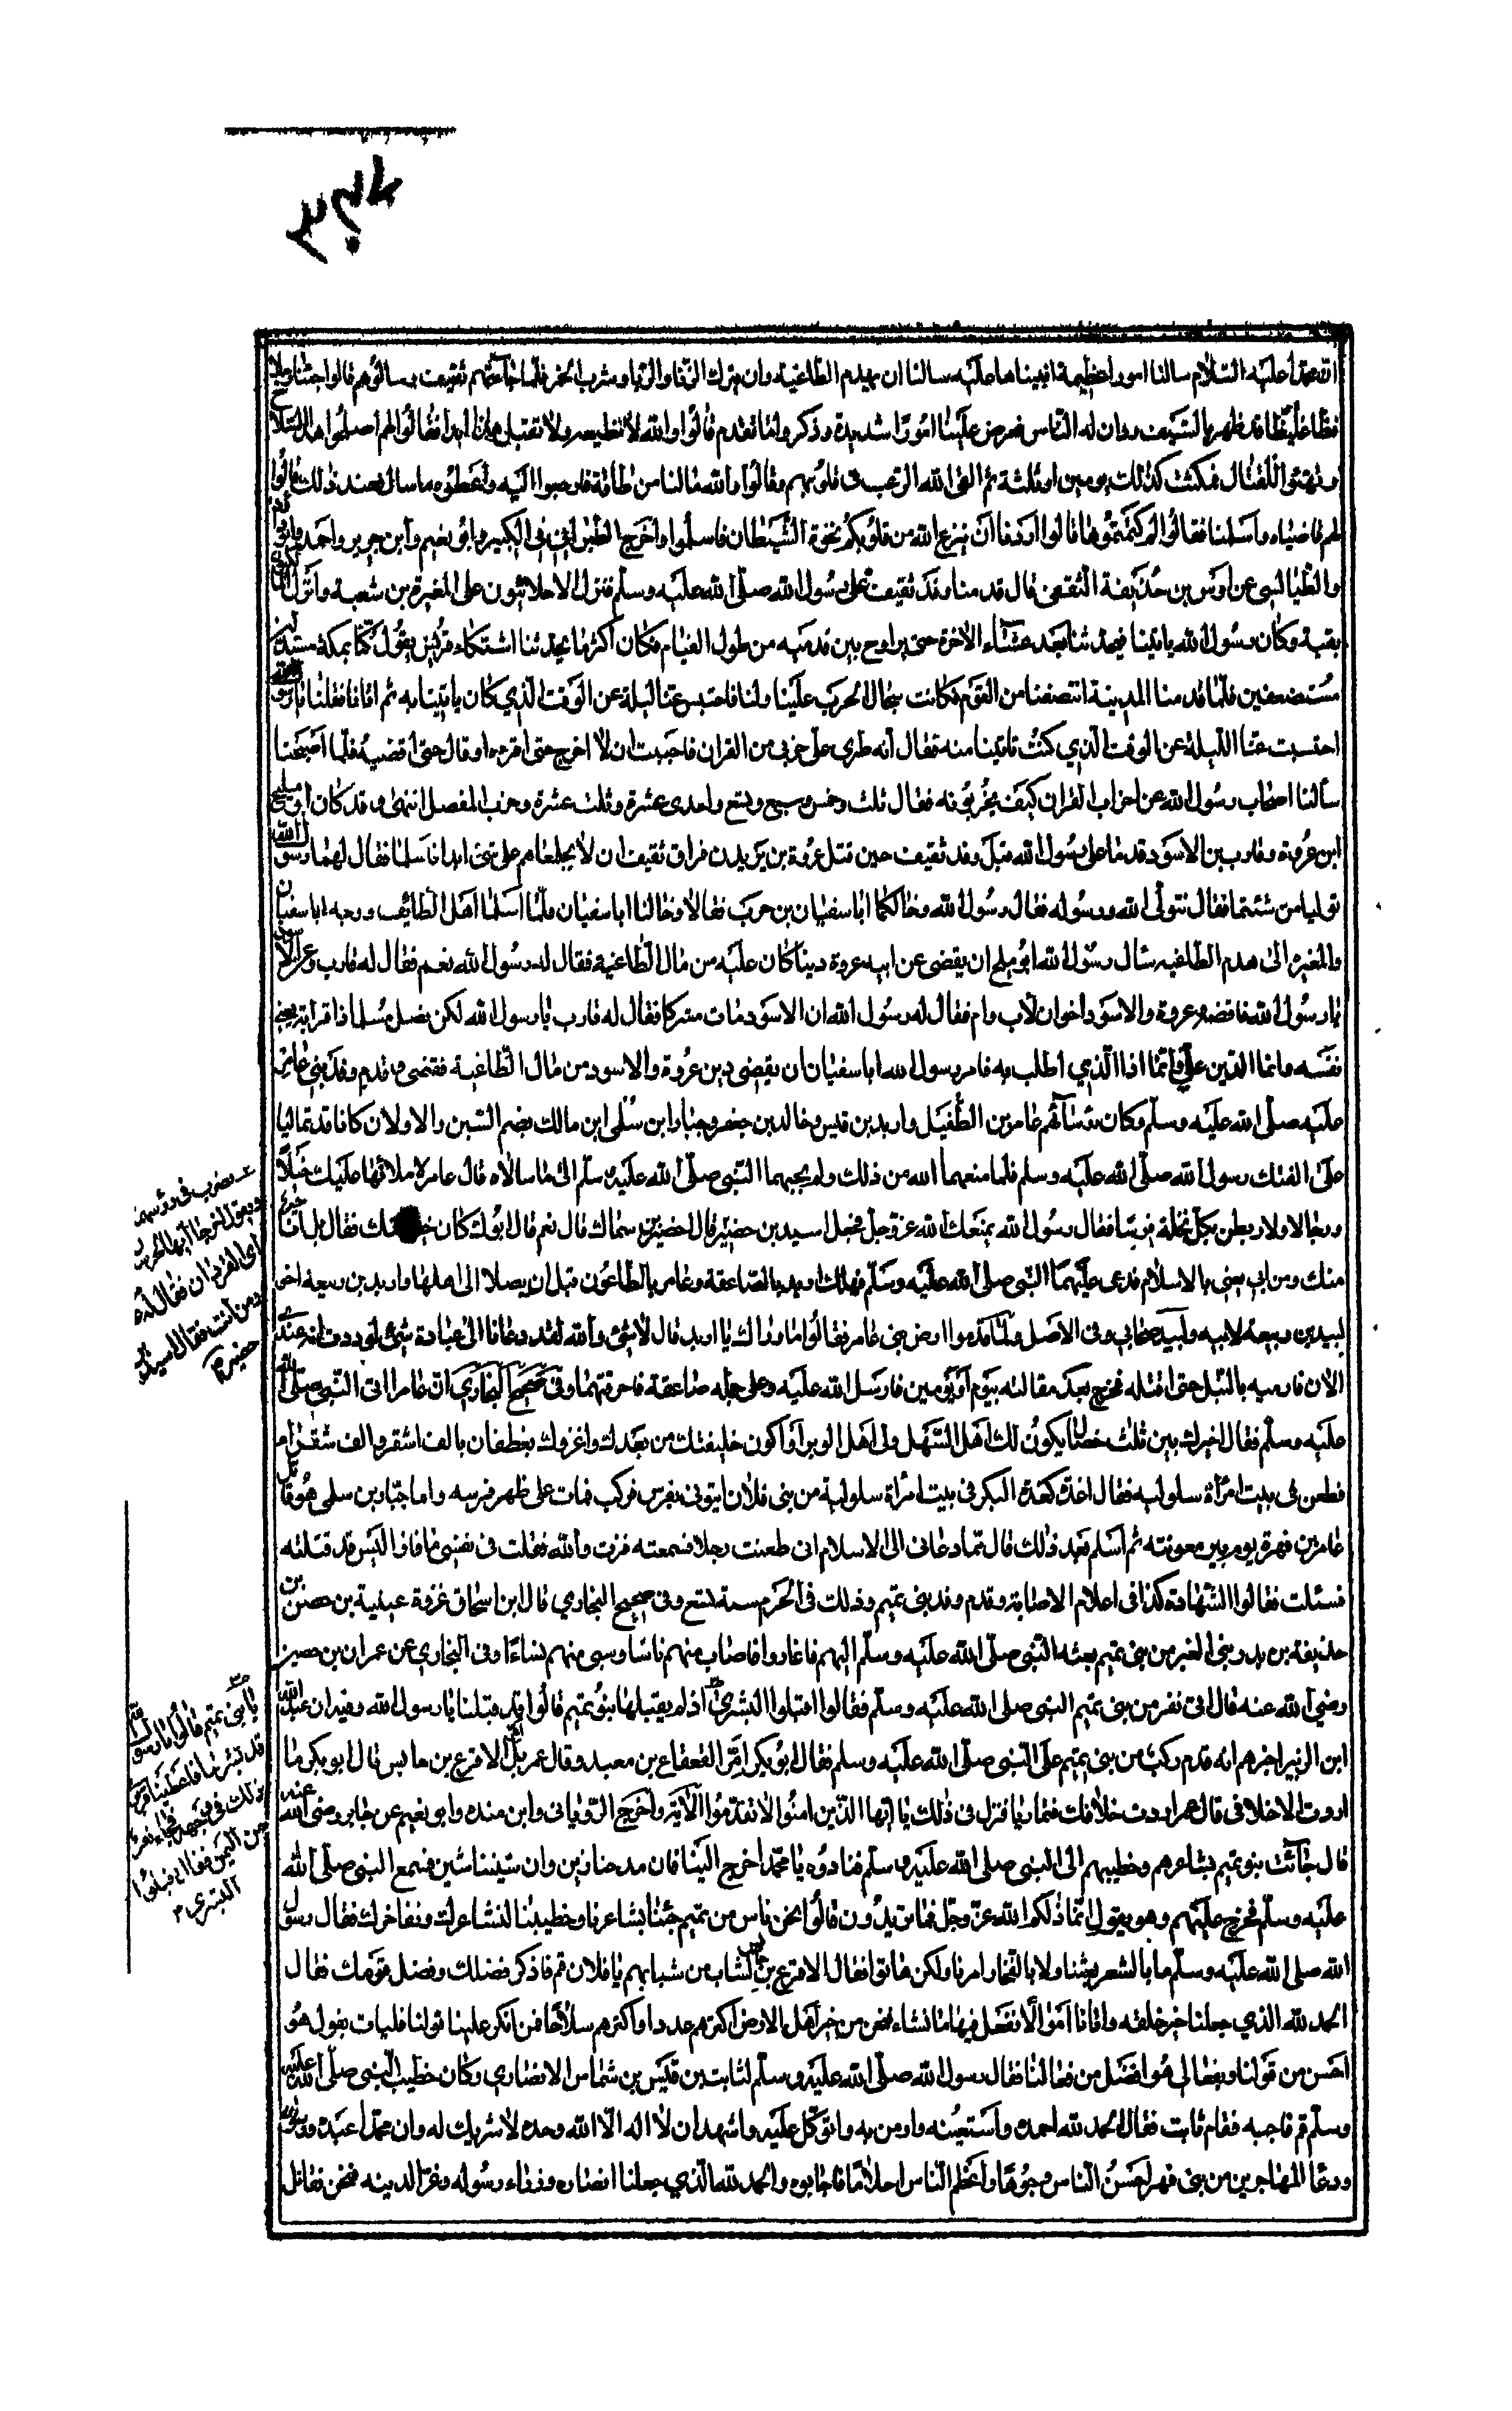 ان محمدا عليه السلام سالنا امورا عظيمة ابيناها عليه سالنا ان نهدم الطاغية وان نترك الزنا والربا وشرب الخمر فلما جاءتهم ثقيف يسالونهم قالوا جئنا رجلا
فظا غليظا قد ظهر بالسيف ودان له الناس فعرض علينا امورا شديدة وذكروا ما تقدم قالوا والله لا نطيعه ولا نقبل هذا ابدا فقالوا لهم اصلحوا السلاح
وتهيئوا للقتال فمكثت كذلك يومين او ثلثة ثم القى الله الرعب فى قلوبهم وقالوا والله مالنا من طاقة فارجعوا اليه واعطوه ما سال فعند ذلك قالوا
لهم قاضيناه واسلمنا فقالوا لم كتمتموها قالوا اردنا ان ينزع الله من قلوبكم نخوة الشيطان فاسلموا واخرج الطبرانى فى الكبير وابو نعيم وابن جرير واحمد وابو داود
والطيالسى عن اوس بن حذيفة الثقفى قال قدمنا وفد ثقيف على رسول الله صلى الله عليه وسلم فنزل الاحلافيون على المغيرة بن شعبة وانزل المالكيين
بقبة وكان رسول الله ياتينا فيحدثنا بعد عشاء الاخرة حتى يراوح بين قدميه من طول القيام فكان اكثر ما يحدثنا اشتكاء قريش يقول كنا بمكة مستذلين
مستضعفين فلما قدمنا المدينة انتصفنا من القوم فكانت سجال الحرب علينا ولنا فاحتبس عنا ليلة عن الوقت الذي كان ياتينا به ثم اتانا فقلنا يا رسول الله
احتبست عنا الليلة عن الوقت الذي كنت تاتينا منه فقال انه طرى على حزبى من القران فاحببت ان لا اخرج حتى اقرءه او قال حتى اقضيه فلما اصبحنا
سألنا اصحاب رسول الله عن احزاب القران كيف يحزبونه فقال ثلث وخمس وسبع وتسع واحدى عشرة وثلث عشرة وحزب المفصل انتهى وقد كان ابو مليح
ابن عروة وقارب بن الاسود قدما على رسول الله قبل وفد ثقيف حين قتل عروة بن يريدان فراق ثقيف ان لا يجامعاهم على شئ ابدا فاسلما فقال لهما رسول الله
توليا من شئتما فقال نتولى الله ورسوله فقال رسول الله وخالكما ابا سفيان بن حرب فقالا وخالنا ابا سفيان فلما اسلما اهل الطايف ووجه ابا سفيان
والمغيرة الى هدم الطاغية سال رسول الله ابو مليح ان يقضى عن ابيه عروة دينا كان عليه من مال الطاغية فقال له رسول الله نعم فقال له قارب وعن الاسود
يا رسول الله فاقضه وعروة والاسود اخوان لاب وام فقال له رسول الله ان الاسود مات مشركا فقال له قارب يا رسول الله لكن يصل مسلما ذا قرابة يعنى
نفسه وانما الدين على وانما انا الذي اطلب به فامر رسول الله ابا سفيان ان يقضى دين عروة والاسود من مال الطاغية فقضى وقدم وفد بنى عامر
عليه صلى الله عليه وسلم وكان رؤسائهم عامر بن الطفيل واربد بن قيس وخالد بن جعفر وجبار ابن سلمى ابن مالك بضم السين والاولان كانا قد تماليا
على الفتك رسول الله صلى الله عليه وسلم فلما منعهما الله من ذلك ولم يجبهما النبى صلى الله عليه وسلم الى ما سالاه قال عامر لاملانها عليك خيلا
ورجالا ولاربطن بكل نخلة فرسا فقال رسول الله يمنعك الله عز وجل فجعل اسيد بن حضير قال احضير بن سماك قال نعم قال ابوك كان خيرا منك فقال بل انا خير
منك ومن ابى يعنى بالاسلام فدعى عليهما النبى صلى الله عليه وسلم فهلك اربد بالصاعقة وعامر بالطاعون قبل ان يصلا الى اهلها واربد بن ربيعة اخى
لبيد بن ربيعة لامه ولبيد صحابى وفى الاصل ولما قدموا ارض بنى عامر فقالوا ما وراك يا اربد قال لا شئ والله لقد دعانا الى عبادة شئ لوددت انه عندى
الان فارميه بالنبل حتى اقتله فخرج بعد مقالته بيوم او يومين فارسل الله عليه وعلى جمله صاعقة فاحرقتهما وفى صحيح البخاري ان عامرا اتى النبى صلى الله
عليه وسلم فقال اخيرك بين ثلث خصال يكون لك اهل السهل ولى اهل الوبر او اكون خليفتك من بعدك واغزوك بغطفان بالف اشقر والف شقراء
فطعن فى بيت امرأة سلولية فقال اغدة كغدة البكر فى بيت امرأة سلولية من بنى فلان ايتونى بفرسى فركب فمات على ظهر فرسه واما جبار بن سلمى هو قاتل
عامر بن فهيرة يوم بير معونة ثم اسلم بعد ذلك قال مما دعانى الى الاسلام انى طعنت رجلا فسمعته فزت والله فقلت فى نفسى ما فاز اليس قد قتلته
فسئلت فقالوا الشهادة كذا فى اعلام الاصابة وقدم وفد بنى تميم وذلك فى المحرم سنة تسع وفى صحيح البخاري قال ابن اسحاق غزوة عيينة بن حصن بن
حذيفة بن بدر بنى العنبر من بنى تميم بعثه النبى صلى الله عليه وسلم اليهم فاغار واصاب منهم ناسا وسبى منهم نساء وفى البخاري عن عمران بن حصين
رضى الله عنه قال اتى نفر من بنى تميم النبى صلى الله عليه وسلم فقالوا اقبلوا البشرى اذ لم يقبلها بنو تميم قالوا قد قبلنا يا رسول الله وفيه ان عبد الله
ابن الزبير اخبرهم انه قدم ركب من بنى تميم على النبى صلى الله عليه وسلم فقال ابو بكر امر القعقاع بن معبد وقال عمر بل امر الاقرع بن حابس قال ابو بكر ما
اردت الا خلافى قال عمر اردت خلافك فتماريا فنزل فى ذلك يا ايها الذين امنوا لا تقدموا الآية واخرج الرويانى وابن منده وابو نعيم عن جابر رضى الله عنه
قال جائت بنو تميم بشاعرهم وخطيبهم الى النبى صلى الله عليه وسلم فنادوه يا محمد اخرج الينا فان مدحنا زين وان شيننا شين فسمع النبى صلى الله
عليه وسلم فخرج عليهم وهو يقول انما ذلكم الله عز وجل فما تريدون قالوا نحن ناس من تميم جئنا بشاعرنا وخطيبنا لنشاعرك ونفاخرك فقال رسول
الله صلى الله عليه وسلم ما بالشعر بعثنا ولا بالفخار امرنا ولكن هاتوا فقال الاقرع بن حابس لشاب من شبابهم يا فلان قم فاذكر فضلك وفضل قومك فقال
الحمد لله الذي جعلنا خير خلقه واتانا اموالا نفعل فيها ما نشاء نحن من خير اهل الارض اكثرهم عددا واكثرهم سلاحا فمن انكر علينا قولنا فليات بقول هو
احسن من قولنا وبفعال هو افضل من فعالنا فقال رسول الله صلى الله عليه وسلم لثابت بن قيس بن شماس الانصاري وكان خطيب النبى صلى الله عليه
وسلم قم فاجبه فقام ثابت فقال الحمد لله احمده واستعينه واومن به واتوكل عليه واشهد ان لا اله الا الله وحده لا شريك له وان محمدا عبده ورسوله
ودعا المهاجرين من بنى فهر احسن الناس وجوها واعظم الناس احلاما فاجابوه والحمد لله الذي جعلنا انصاره ووزراء رسوله وعز الدينه فنحن نقاتل
يضرب فى رؤسهما
ويقول اخرجا ايها
فقال له
ومن انت فقال اسيد بن
حضير
يا بنى تميم قالوا يا رسول الله
قد بشرتنا فاعطنا فرئ
ذلك فى وجهه فجاء نفر
من اليمن فقال اقبلوا
البشرى